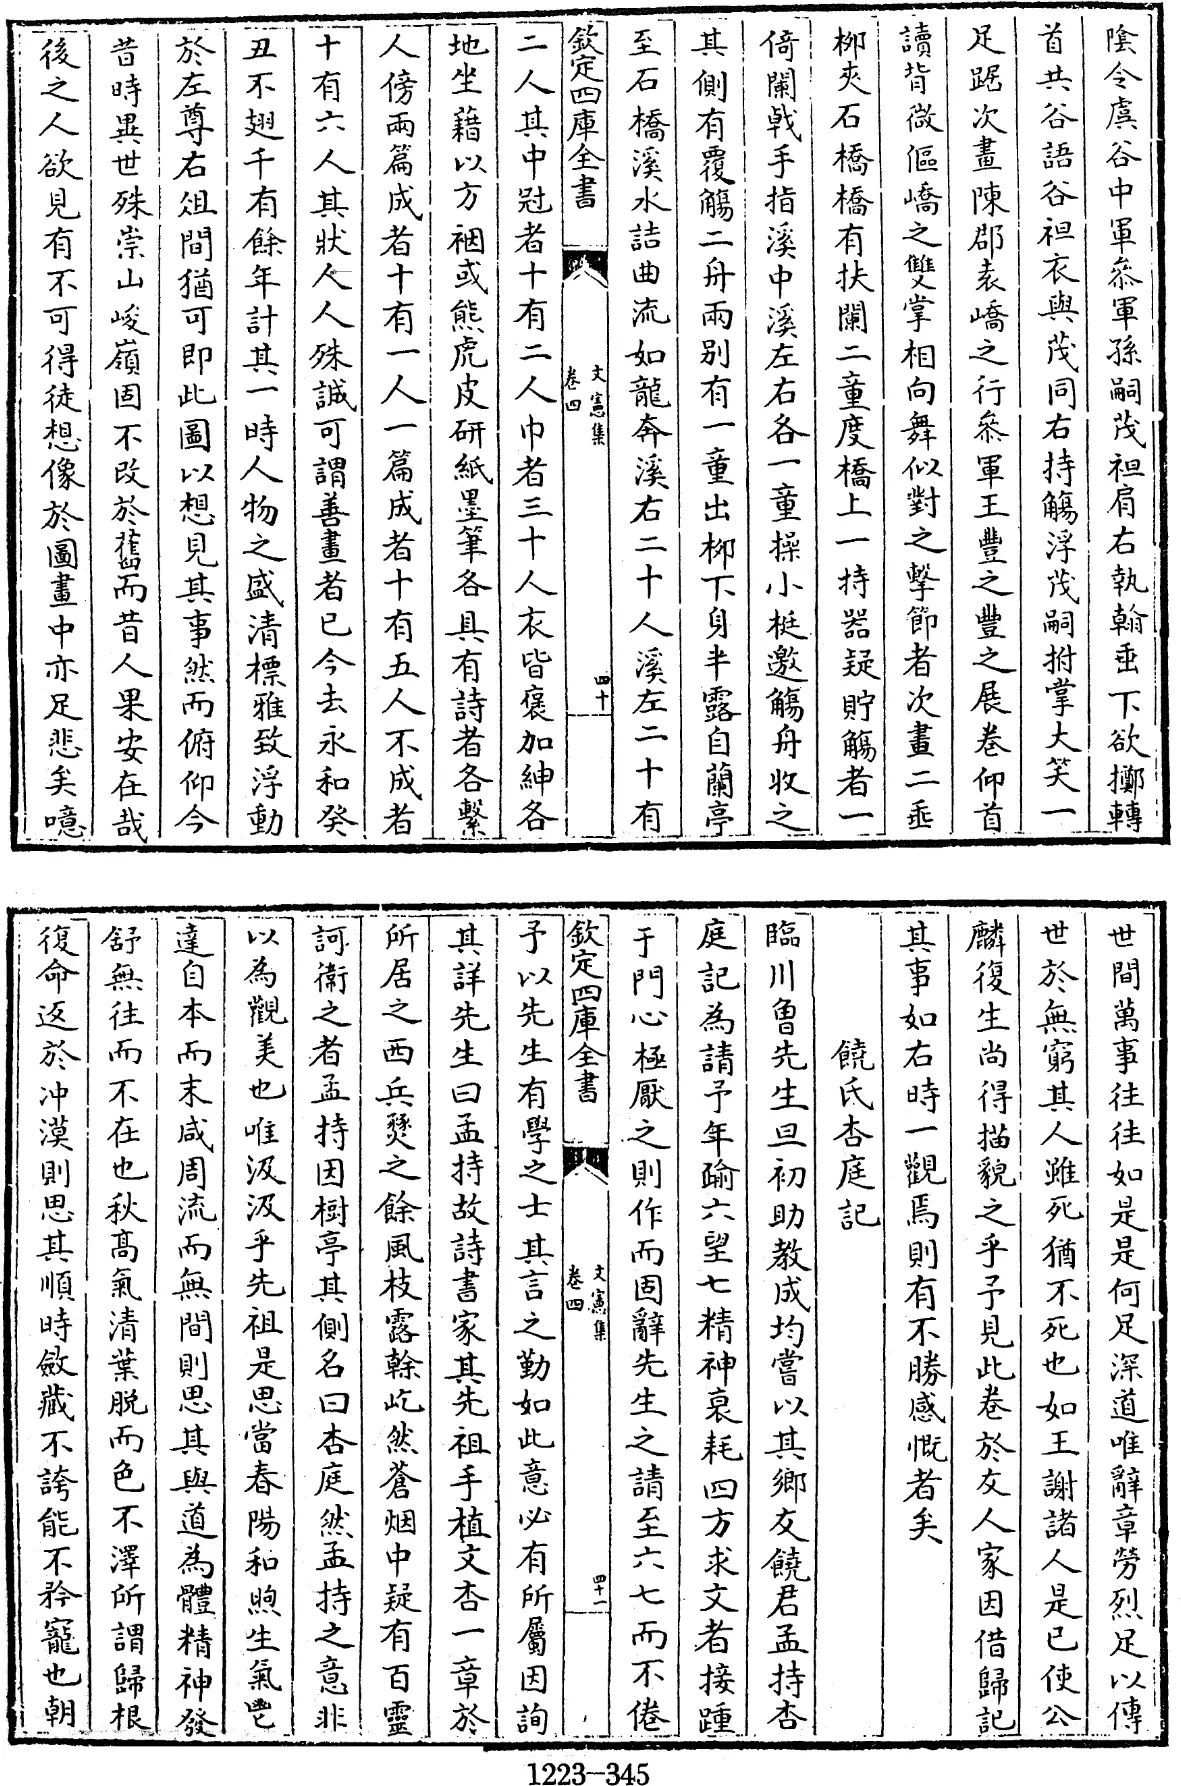 陰令虞谷中軍叅軍孫嗣茂袒肩右執翰垂下欲擲轉
首共谷語谷袒衣與茂同右持觴浮茂嗣拊掌大笑一
足踞次畫陳郡袁嶠之行叅軍王豐之豐之展卷仰首
讀背微傴嶠之雙掌相向舞似對之擊節者次畫二垂
柳夾石橋橋有扶闌二童度橋上一持器疑貯觴者一
倚闌戟手指溪中溪左右各一童操小梃邀觴舟收之
其側有覆觴二舟兩别有一童出柳下身半露自蘭亭
至石橋溪水詰曲流如龍奔溪右二十人溪左二十有
欽定四庫全書
文憲集
卷四
四十
二人其中冠者十有二人巾者三十人衣皆褒加紳各
地坐藉以方裀或熊虎皮研紙墨筆各具有詩者各繫
人傍兩篇成者十有一人一篇成者十有五人不成者
十有六人其狀人人人殊誠可謂善畫者已今去永和癸
丑不翅千有餘年計其一時人物之盛清標雅致浮動
於左尊右俎間猶可即此圖以想見其事然而俯仰今
昔時異世殊崇山峻嶺固不改於舊而昔人果安在哉
後之人欲見有不可得徒想像於圖畫中亦足悲矣噫
世間萬事往往如是是何足深道唯辭章勞烈足以傳
世於無窮其人雖死猶不死也如王謝諸人是已使公
麟復生尚得描貌之乎予見此卷於友人家因借歸記
其事如右時一觀焉則有不勝感慨者矣
饒氏杏庭記
臨川魯先生旦初助教成均嘗以其鄉友饒君孟持杏
庭記為請予年踰六望七精神衰耗四方求文者接踵
于門心極厭之則作而固辭先生之請至六七而不倦
欽定四庫全書
文憲集
卷四
四十一
予以先生有學之士其言之勤如此意必有所屬因詢
其詳先生曰孟持故詩書家其先祖手植文杏一章於
所居之西兵燹之餘風枝露榦屹然蒼烟中疑有百靈
訶衛之者孟持因樹亭其側名曰杏庭然孟持之意非
以為觀美也唯汲汲乎先祖是思當春陽和煦生氣鬯
達自本而末咸周流而無間則思其與道為體精神發
舒無往而不在也秋髙氣清葉脱而色不澤所謂歸根
復命返於冲漠則思其順時斂藏不誇能不矜寵也朝
1223-345